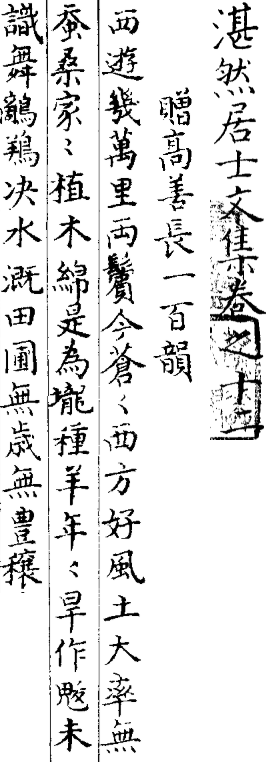 湛然居士文集卷之十二
贈高善長一百韻
西遊幾萬里兩鬢今蒼〻西方好風土大率無
蚕桑家〻植木綿是為壠種羊年〻旱作魃未
識舞鴹决水溉田圃無歳無豊穰